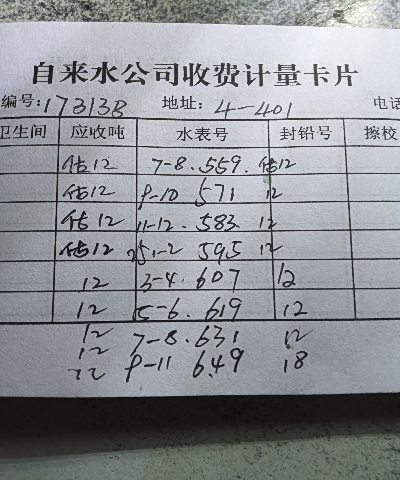 自来水公司收费计量卡片
编号:173138 地址: 4-401 电话
卫生间 应收吨 水表号 封铅号 擦校
估12 7-8.559. 估12
估12 9-10 571 12
估12 11-12.583 12
估12 251-2 595 12
12 3-4.607 12
12 5-6.619 12
12 7-8.631 12
12
12 9-11 649 18